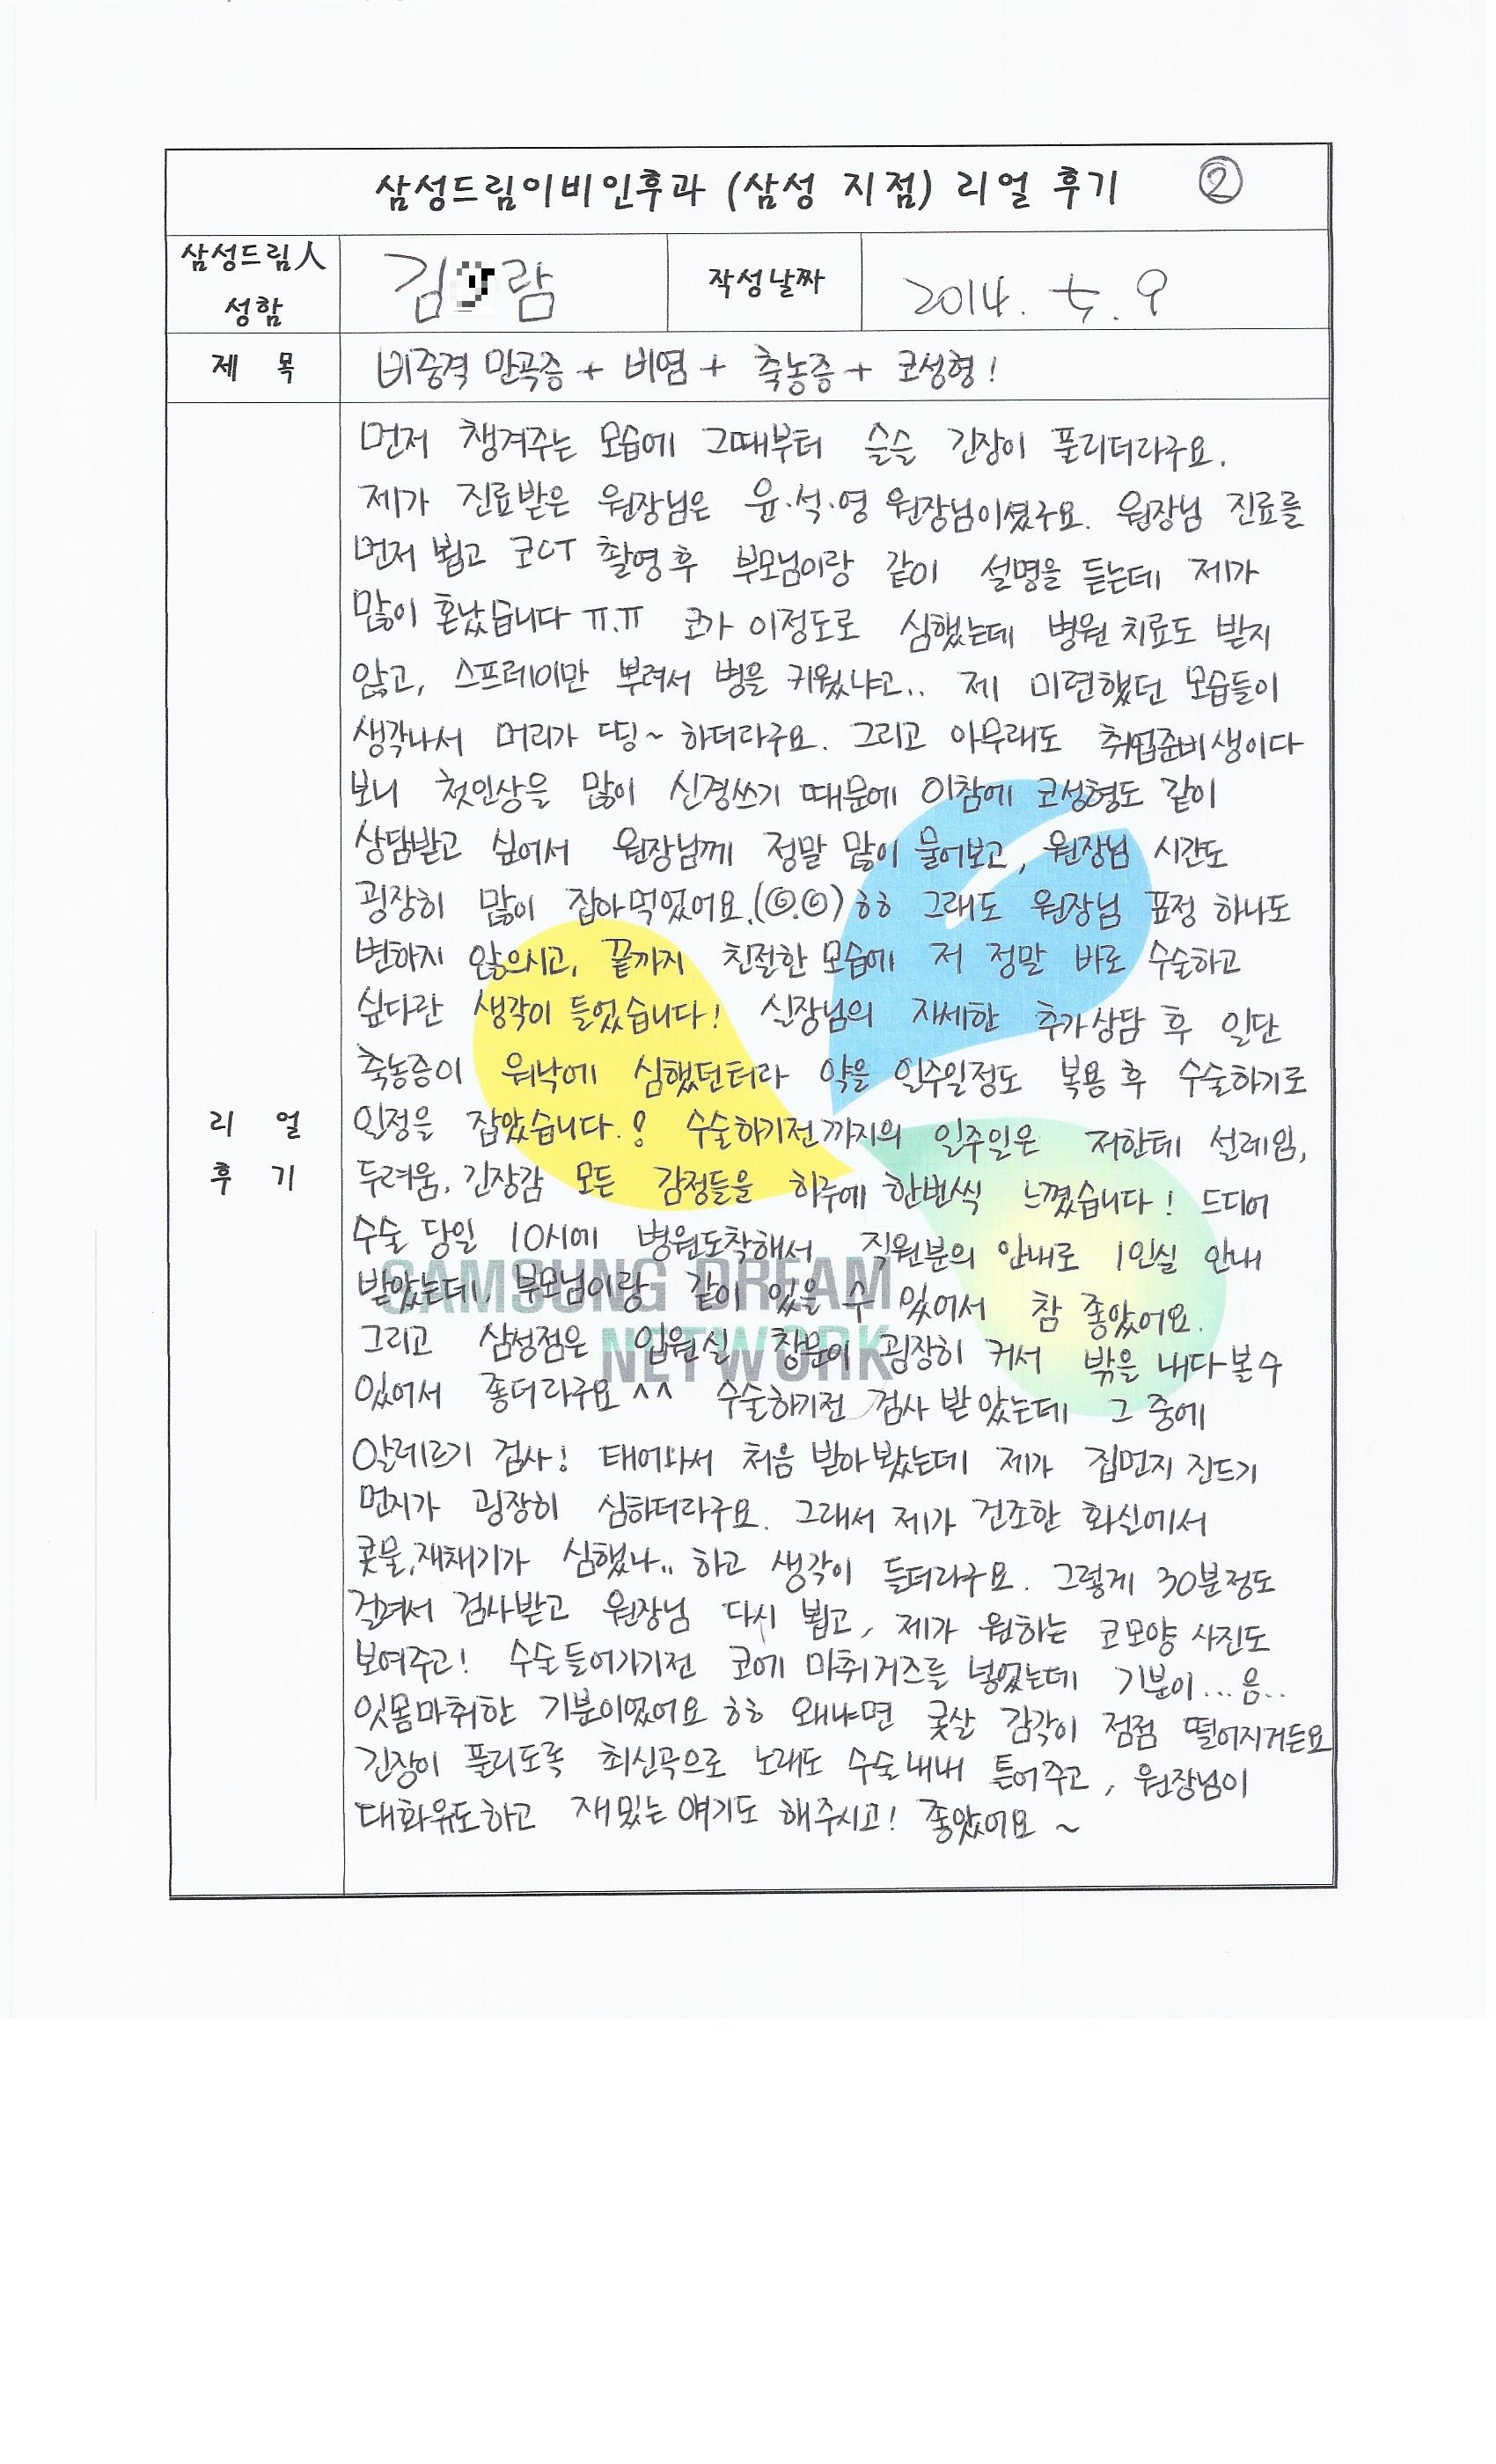 삼성드림이비인후과 (삼성 지점) 리얼 후기 ②
삼성드림人
성함
김 람
작성날짜
2014. 5. 9
제 목
비중격 만곡증 + 비염 + 축농증 + 코성형!
리 얼
후 기
먼저 챙겨주는 모습에 그때부터 슬슬 긴장이 풀리더라구요.
제가 진료받은 원장님은 윤·석·영 원장님이셨구요. 원장님 진료를
먼저 뵙고 코CT 촬영후 부모님이랑 같이 설명을 듣는데 제가
많이 혼났습니다 ㅠ.ㅠ 코가 이정도로 심했는데 병원 치료도 받지
않고, 스프레이만 뿌려서 병을 키웠냐고.. 제 미련했던 모습들이
생각나서 머리가 띵~ 하더라구요. 그리고 아무래도 취업준비생이다
보니 첫인상을 많이 신경쓰기 때문에 이참에 코성형도 같이
상담받고 싶어서 원장님께 정말 많이 물어보고, 원장님 시간도
굉장히 많이 잡아먹었어요.(◎.◎) ㅎㅎ 그래도 원장님 표정 하나도
변하지 않으시고, 끝까지 친절한 모습에 저 정말 바로 수술하고
싶다란 생각이 들었습니다! 실장님의 자세한 추가상담 후 일단
축농증이 워낙에 심했던터라 약을 일주일정도 복용 후 수술하기로
일정을 잡았습니다.! 수술하기전까지의 일주일은 저한테 설레임,
두려움, 긴장감 모든 감정들을 하루에 한번씩 느꼈습니다! 드디어
수술 당일 10시에 병원도착해서 직원분의 안내로 1인실 안내
받았는데, 부모님이랑 같이 있을 수 있어서 참 좋았어요.
그리고 삼성점은 입원실 창문이 굉장히 커서 밖을 내다볼수
있어서 좋더라구요 ^^ 수술하기전 검사 받았는데 그 중에
알레르기 검사! 태어나서 처음 받아 봤는데 제가 집먼지 진드기
먼지가 굉장히 심하더라구요. 그래서 제가 건조한 화실에서
콧물,재채기가 심했나.. 하고 생각이 들더라구요. 그렇게 30분정도
걸려서 검사받고 원장님 다시 뵙고, 제가 원하는 코모양 사진도
보여주고! 수술들어가기전 코에 마취거즈를 넣었는데 기분이...음..
잇몸마취한 기분이었어요 ㅎㅎ 왜냐면 콧살 감각이 점점 떨어지거든요
긴장이 풀리도록 최신곡으로 노래도 수술내내 틀어주고, 원장님이
대화유도하고 재밌는 얘기도 해주시고! 좋았어요 ~
SAMSUNG DREAM
NETWORK